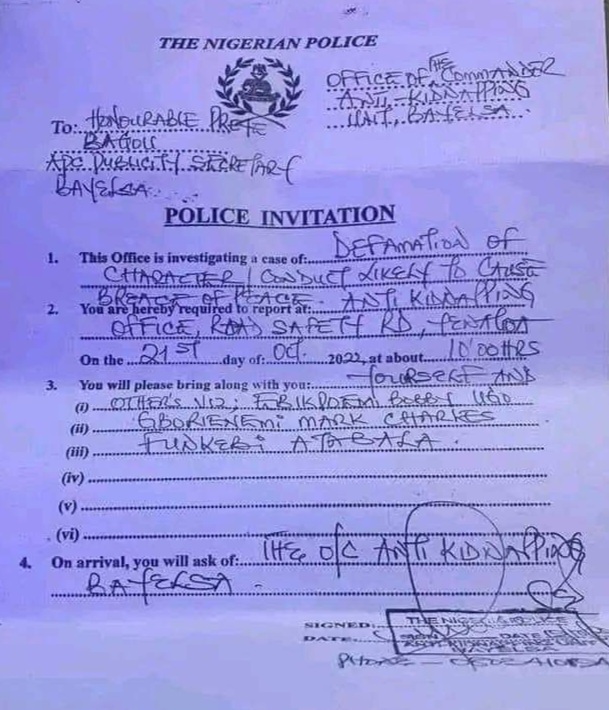 THE NIGERIAN POLICE
OFFICE OF THE COMMANDER
ANTI-KIDNAPPING
UNIT, BAYELSA.
To: HONOURABLE PREYE
BAGOU
APC PUBLICITY SECRETARY
BAYELSA.
POLICE INVITATION
1. This Office is investigating a case of: DEFAMATION OF
CHARACTER / CONDUCT LIKELY TO CAUSE
BREACE OF PEACE.
2. You are hereby required to report at: ANTI KIDNAPPING
OFFICE, ROAD SAFETY RD,
On the 21ST day of: Oct. 2022, at about 10:00HRS
3. You will please bring along with you: YOURSELF AND
(i) OTHER'S VIZ; BOBBY UGO
(ii) GBORIENEMI MARK CHARLES
(iii) FUNKEBI ATABALA.
(iv)
(v)
(vi)
4. On arrival, you will ask of: THE O/C ANTI KIDNAPPING
BAYELSA.
SIGNED:
DATE:
THE NIGERIA POLICE
BAYELSA
PHONE -